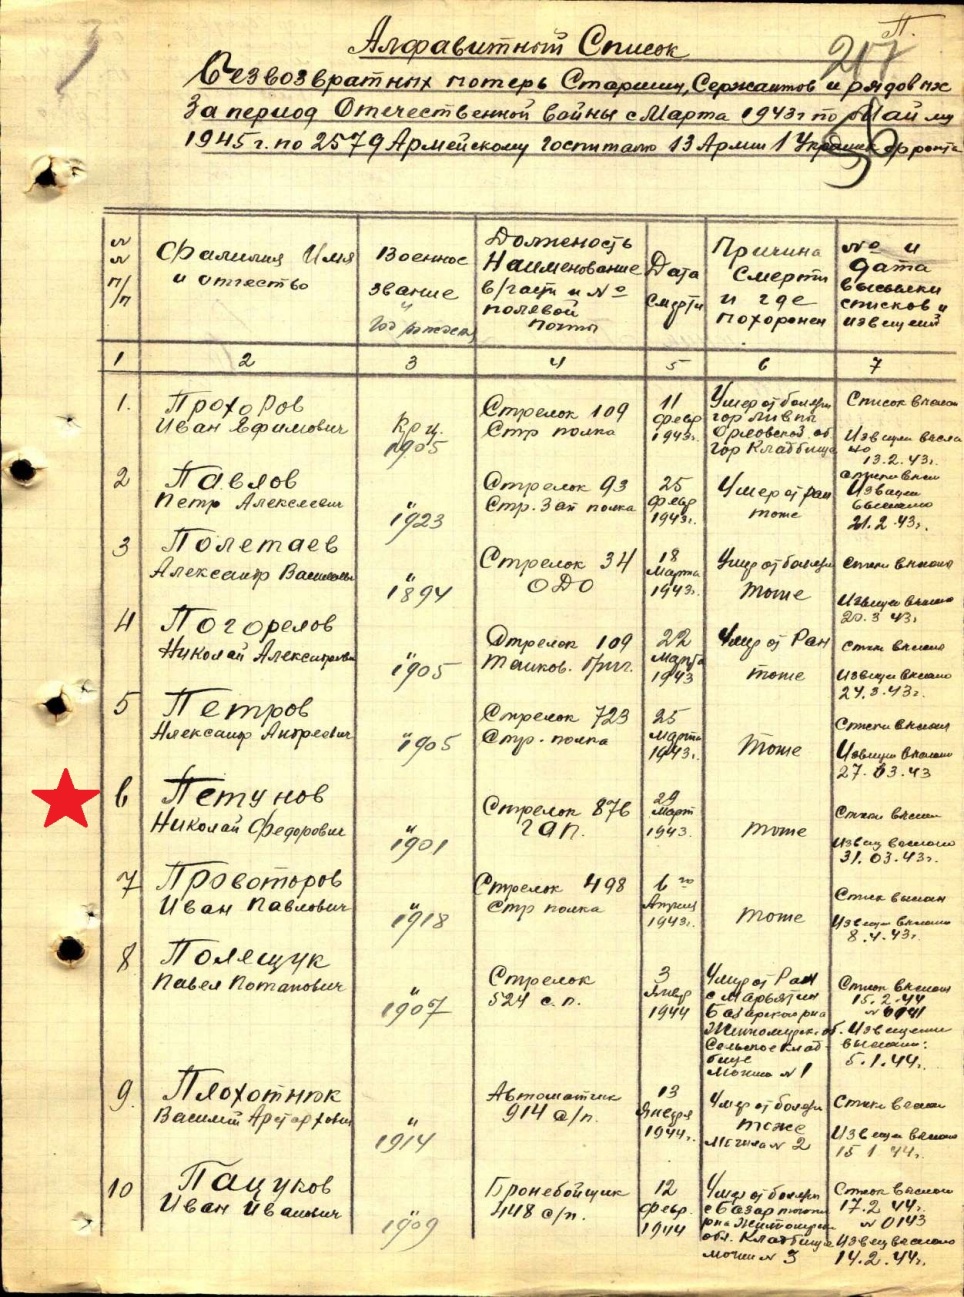 П.
217
Алфавитный Список
безвозвратных потерь Старшин, Сержантов и рядовых
За период Отечественной войны с Марта 1943г по Май м-ц
1945 г. по 2579 Армейскому госпиталю 13 Армии 1 Украин. фронта
№ № п/п
Фамилия Имя и отчество
Военное звание и год рождения
Должность Наименование в/части и № полевой почты
Дата смерти
Причина смерти и где похоронен
№ и дата высылки списков и извещений
1 2 3 4 5 6 7
1. Прохоров Стрелок 109 11 Умер от болезни Список выслан
Иван Ефимович кр-ц. Стр полка февр гор Ливны
1905 1943г. Орловской об. Извещен высла
гор Кладбище но 13.2.43г.
2 Павлов Стрелок 93 25 Умер от ран
Петр Алексеевич Стр. Зап полка февр Извещен
" 1923 1943г. тоже выслано
21.2.43г.
3 Полетаев Стрелок 34 18 Умер от болезни Список выслан
Александр Васильевич ОДО Марта
" 1894 1943г. тоже Извещен выслано
20.3.43г.
4 Погорелов Стрелок 109 22 Умер от Ран Список выслан
Николай Александрович Марта
" 1905 1943 тоже Извещен выслано
24.3.43г.
5 Петров Стрелок 723 25 Список выслан
Александр Андреевич Стр. полка Марта
" 1905 1943г. тоже Извещен выслано
27.03.43
6 Петунов Стрелок 876 29 Список выслан
Николай Федорович ГАП. Март
" 1901 1943. тоже Извещ выслано
31.03.43г.
7 Провоторов Стрелок 498 6го Список выслан
Иван Павлович Стр полка Апреля
" 1918 1943г. тоже Извещен выслано
8.4.43г.
8 Полещук Стрелок 3 Умер от Ран Список выслан
Павел Потапович 524 с.п. Янвр 15.2.44
" 1907 1944 Базарского р-на № 0141
Житомирск. об. Извещение
Сельское клад- выслано:
бище 5.1.44г.
могила № 1
9. Плохотнюк Автоматчик 13 Умер от болезни Список выслан
Василий 914 с/п. Января тоже
" 1914 1944г. Могила № 2 Извещен выслано
15.1.44г.
10 Пацуков Бронебойщик 12 Умер от болезни Список выслан
Иван Иванович 448 с/п. февр. с Базар 17.2.44г.
" 1909 1944 р-на Житомирск № 0143
обл. Кладбище Извещ выслано
могил № 3 14.2.44г.